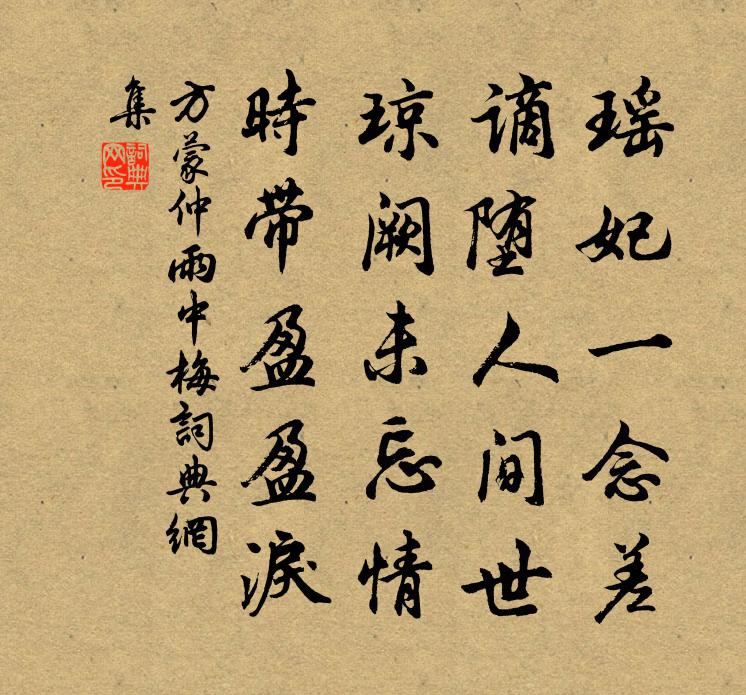 瑶妃一念差
谪堕人间世
琼阙未忘情
時带盈盈淚
方蒙仲雨中梅詞典網
集
詞典网印